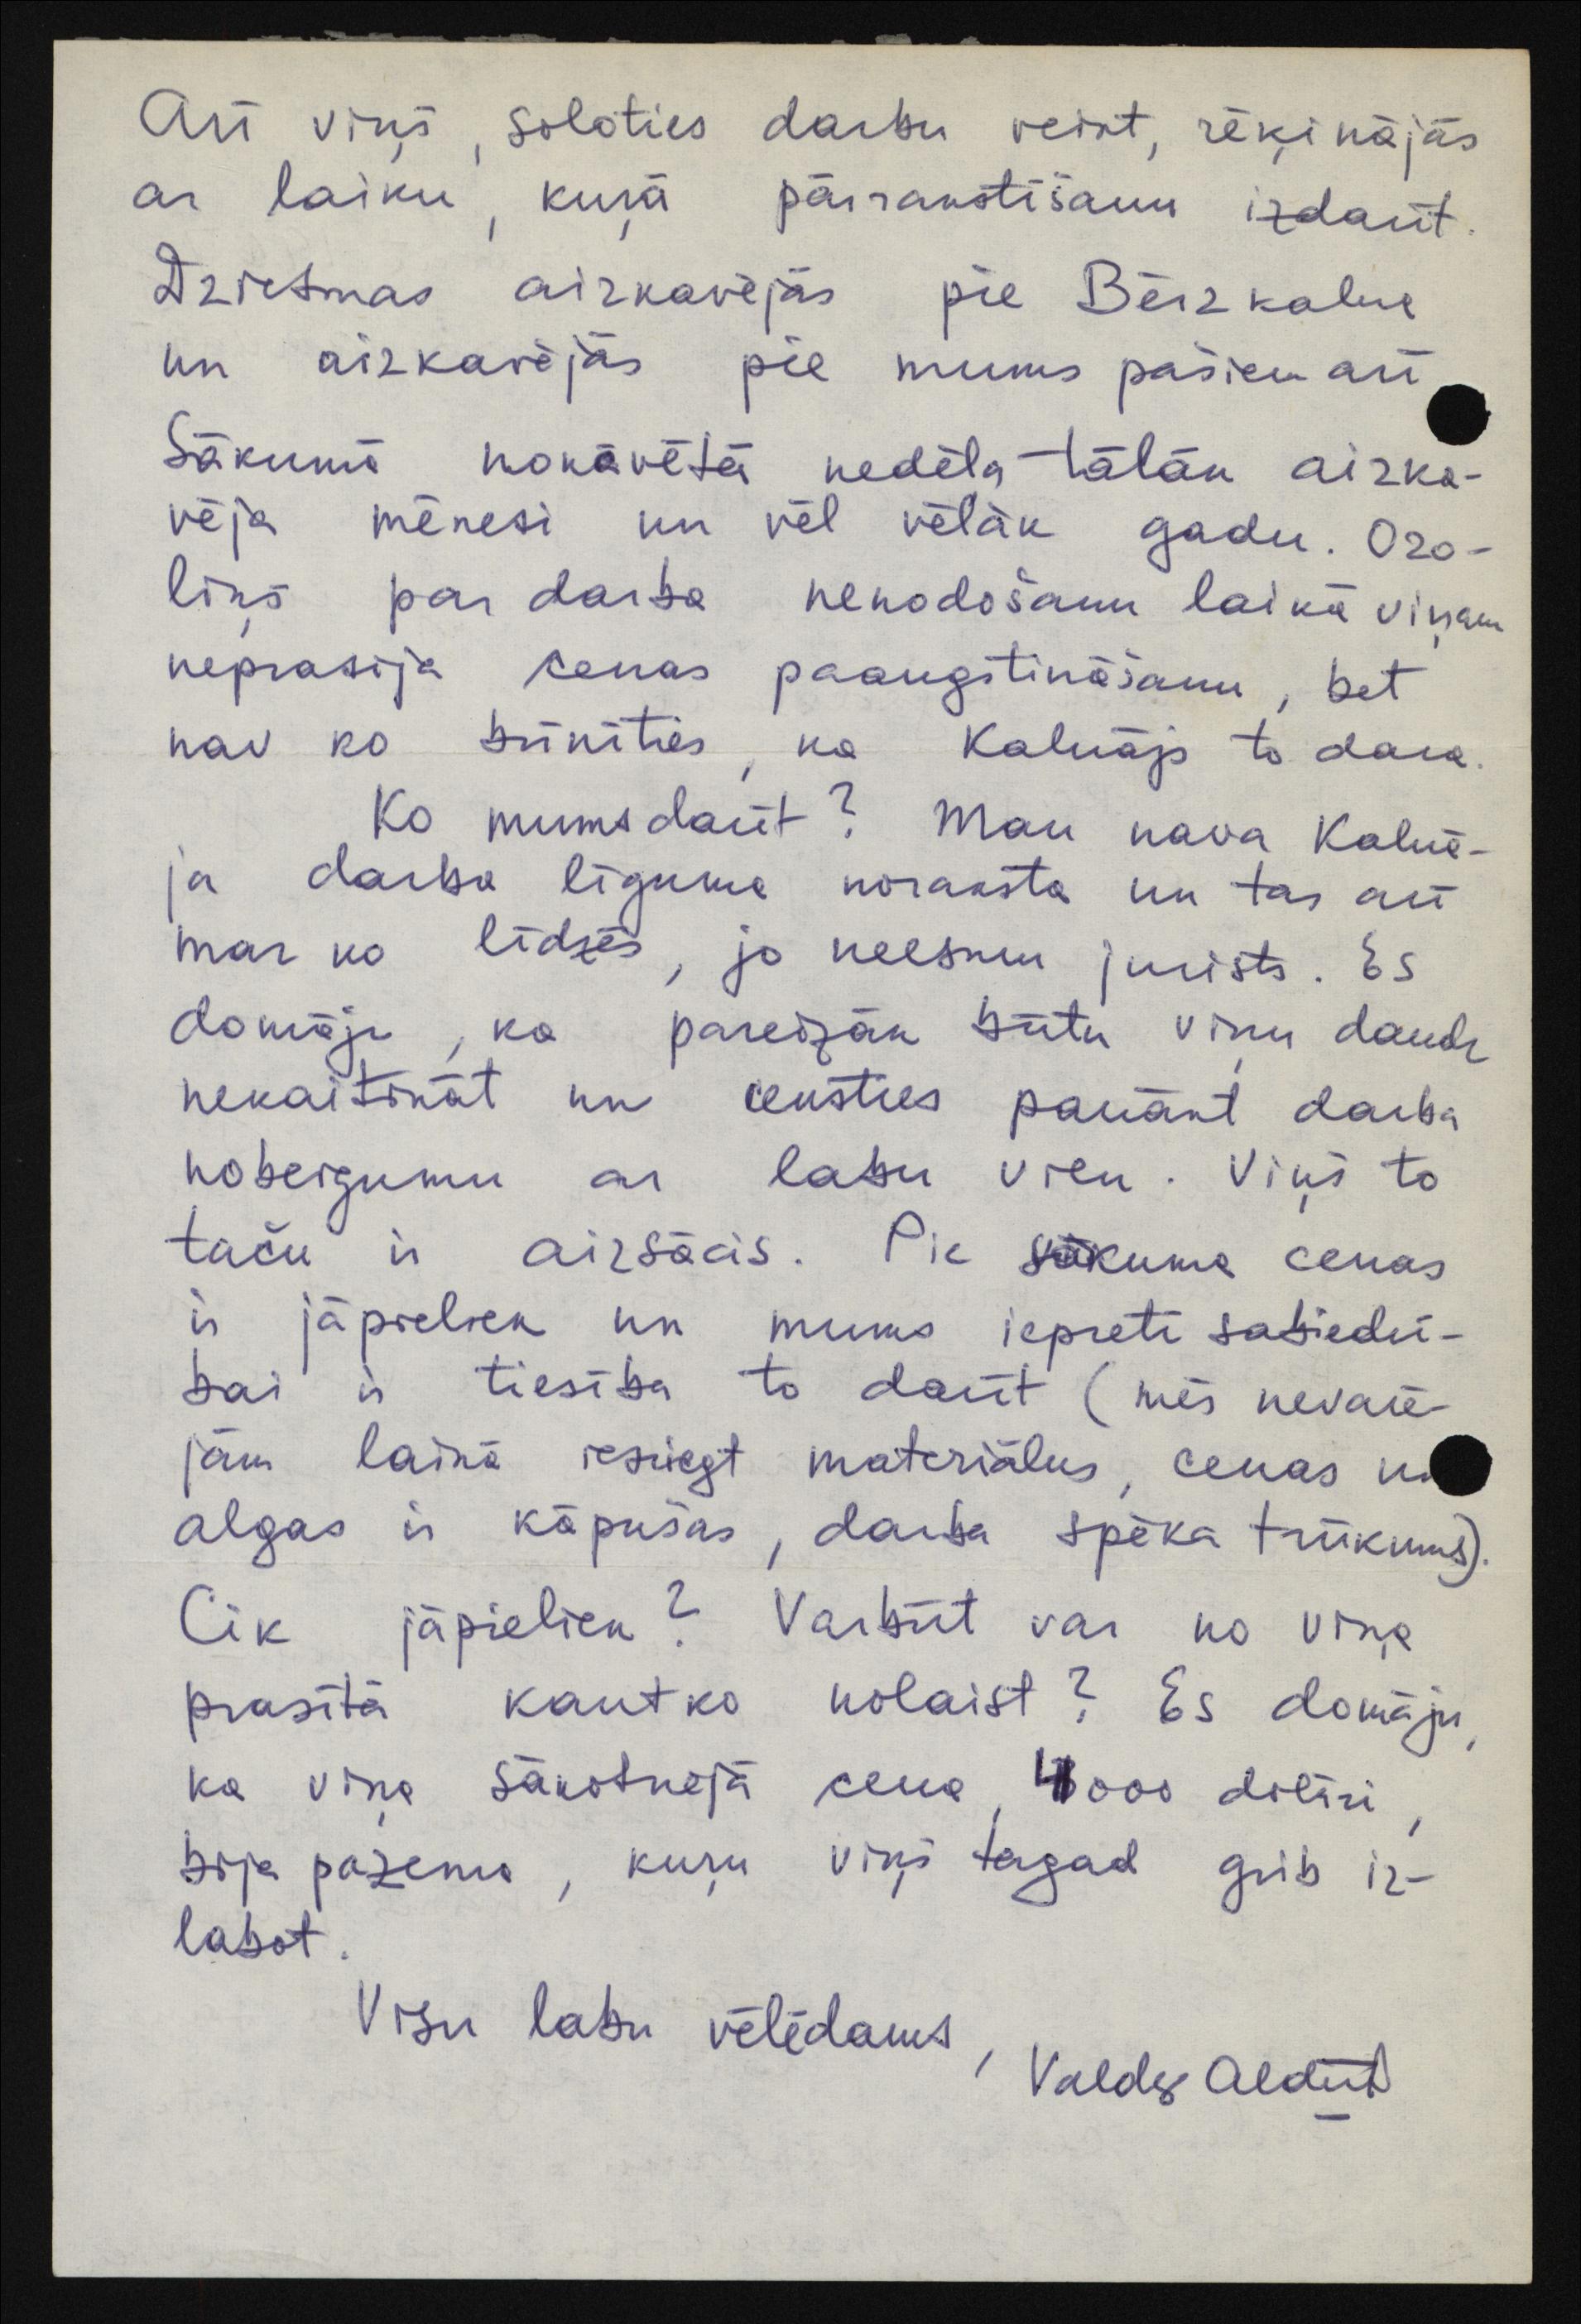 Arī viņš, soloties darbu veikt, rēķinājās
ar laiku, kuŗā pārrakstīšanu izdarīt.
Dziesmas aizkavējās pie Bērzkalna
un aizkavējās pie mums pašiem arī
Sākumā nokavētā nedēļa tālāk aizka-
vēja mēnesi un vēl vēlāk gadu. Ozo-
liņš par darba nenodošanu laikā viņam
neprasīja cenas paaugstināšanu, bet
nav ko brīnīties, ka Kalnājs to dara.
Ko mums darīt? Man nava Kalnā-
ja darba līguma noraksta un tas arī
maz ko līdzēs, jo neesmu jurists. Es
domāju, ka pareizāk būtu viņu daudz
nekaitināt un censties panākt darba
nobeigumu ar labu vien. Viņš to
taču ir aizsācis. Pie sākuma cenas
ir jāpieliek un mums iepretī sabiedrī-
bai ir tiesība to darīt (mēs nevarē-
jām laikā iesniegt materiālus, cenas un
algas ir kāpušas, darba spēka trūkums).
Cik jāpieliek? Varbūt var no viņa
prasītā kautko nolaist? Es domāju,
ka viņa sākotnējā cena, 4000 dolāri,
bija pazema, kuŗu viņš tagad grib iz-
labot.
Visu labu vēlēdams,